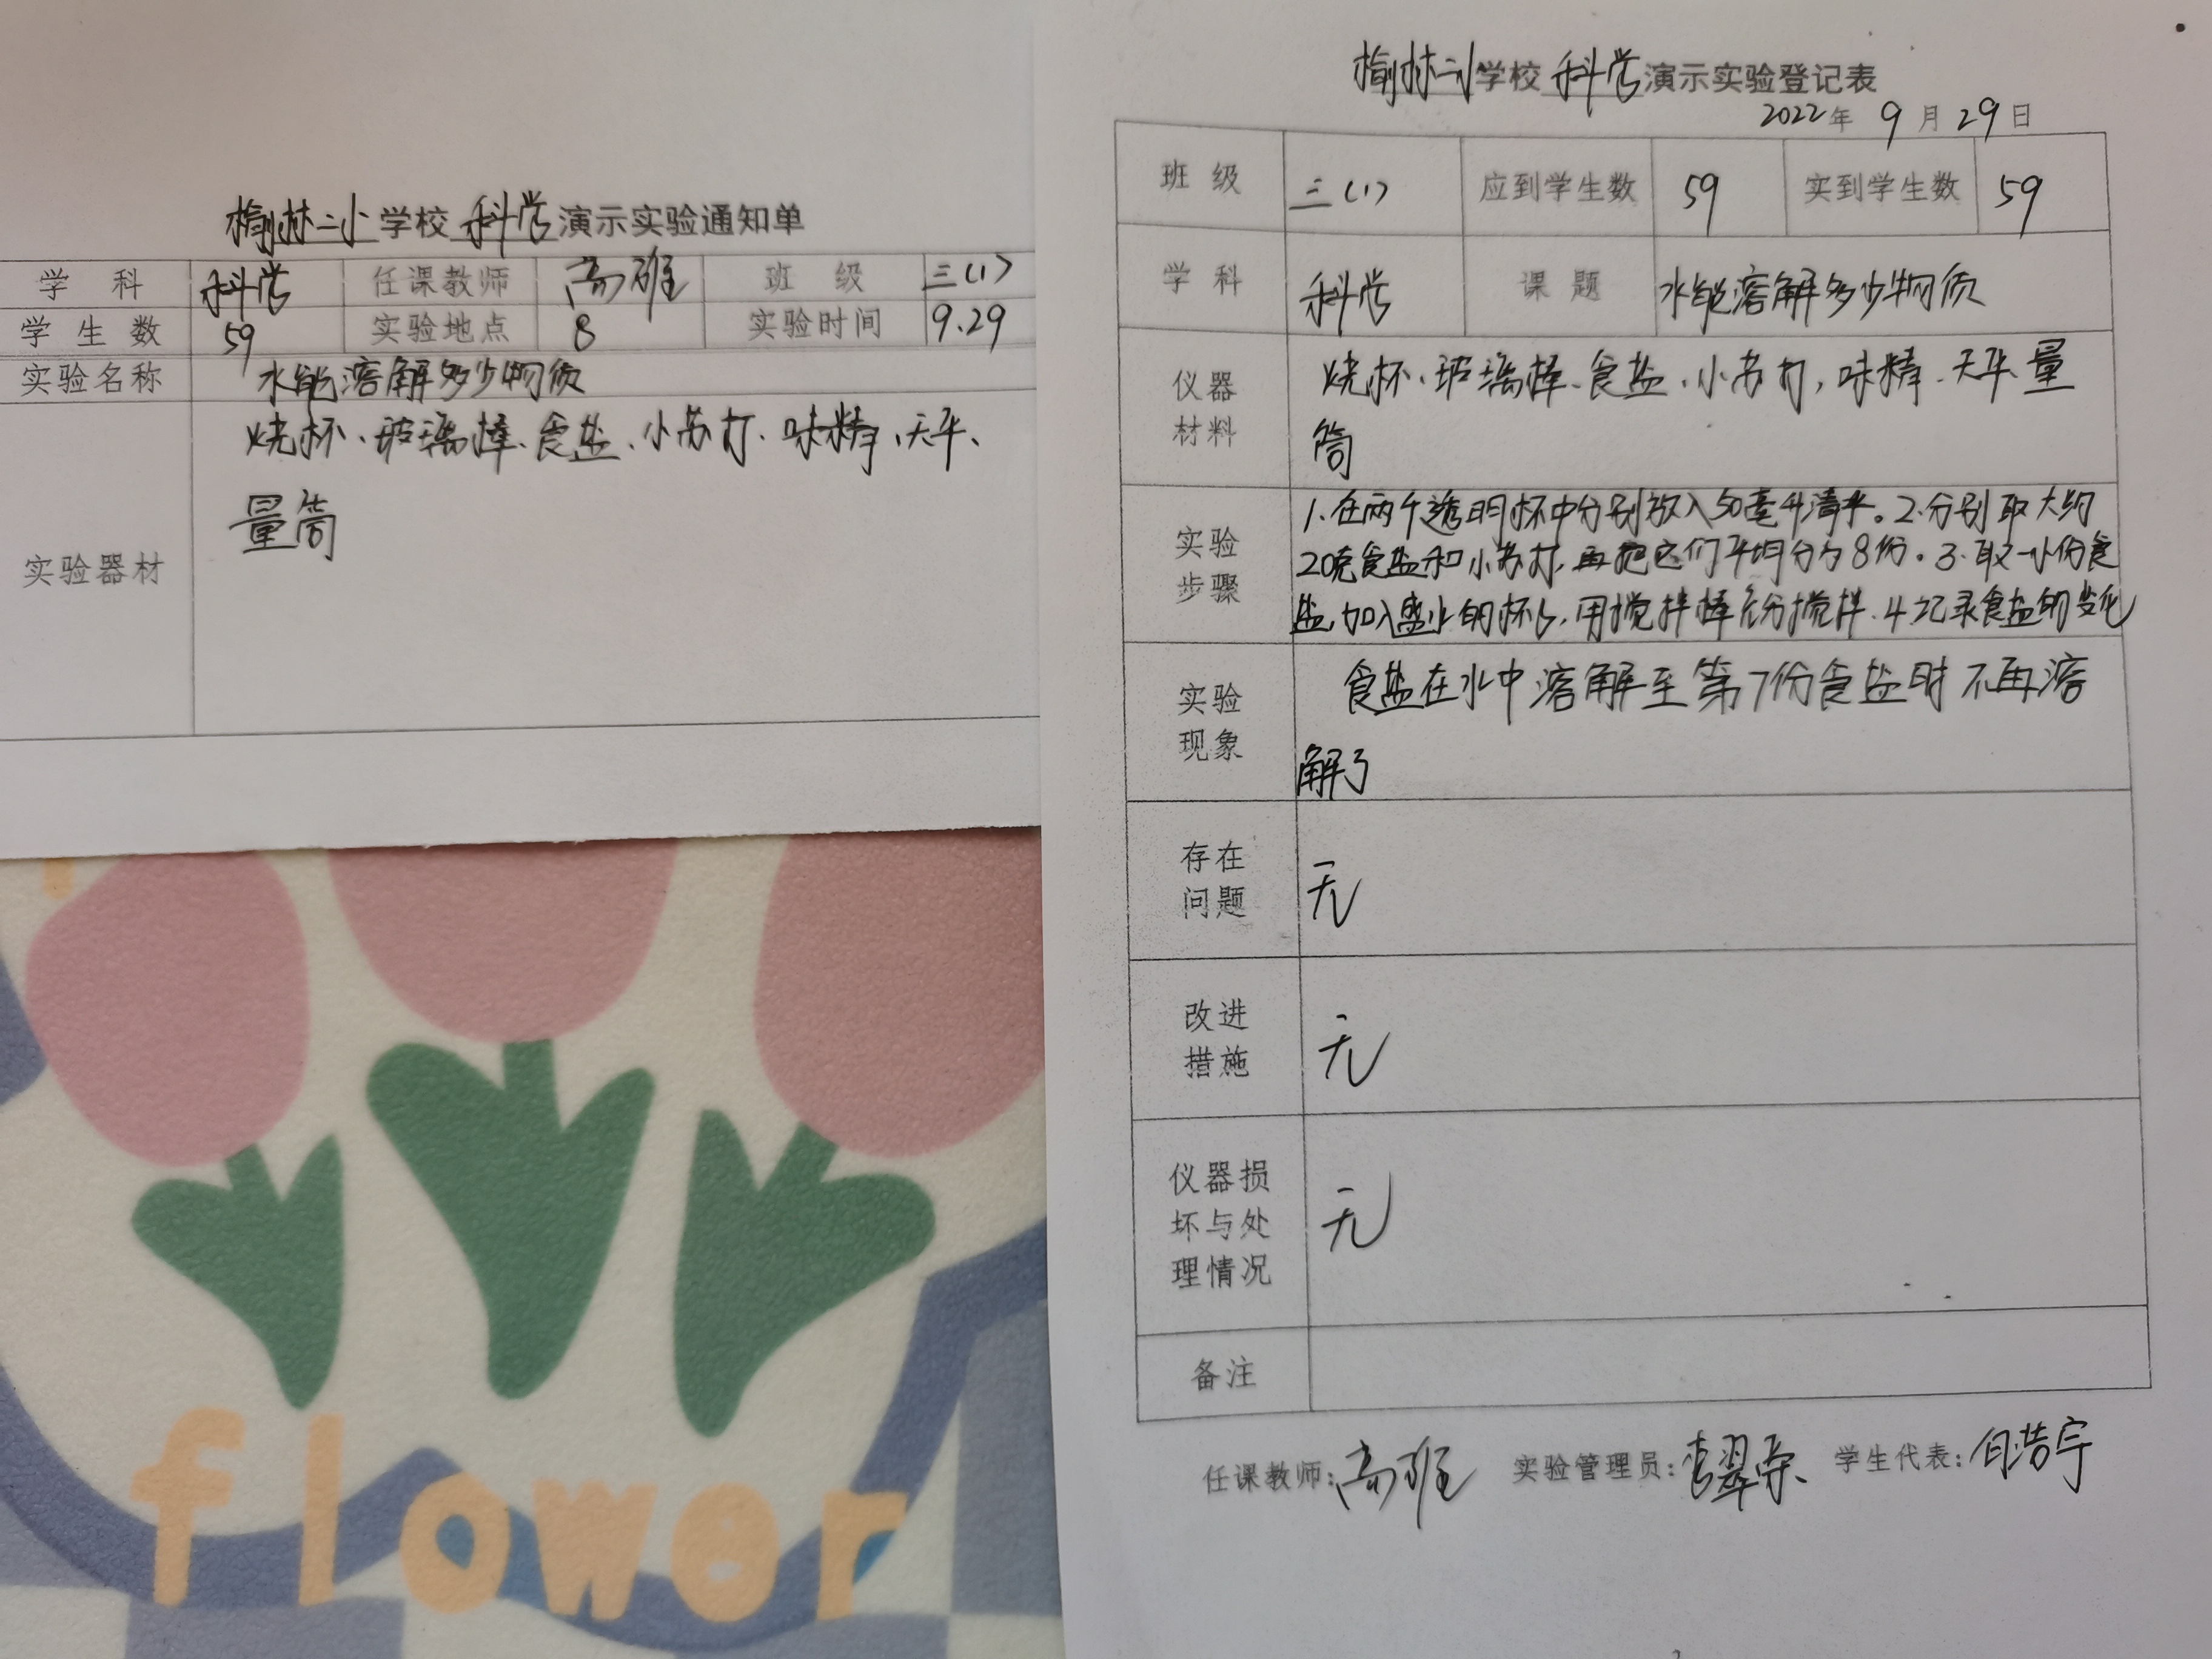 榆林二小学校科学演示实验通知单
学 科 科学 任课教师 高班 班 级 三(1)
学 生 数 59 实验地点 8 实验时间 9.29
实验名称 水能溶解多少物质
实验器材 烧杯、玻璃棒、食盐、小苏打、味精、天平、
量筒
flower
榆林二小学校科学演示实验登记表
2022年9月29日
班 级 三(1) 应到学生数 59 实到学生数 59
学 科 科学 课 题 水能溶解多少物质
仪器
材料
烧杯、玻璃棒、食盐、小苏打,味精、天平、量
筒
实验
步骤
1.在两个透明杯中分别放入50毫升清水。2.分别取大约
20克食盐和小苏打,再把它们平均分为8份。3.取一小份食
盐,加入盛水的杯,用搅拌棒充分搅拌.4.记录食盐的变化
实验
现象
食盐在水中溶解至第7份食盐时不再溶
解了
存在
问题
无
改进
措施
无
仪器损
坏与处
理情况
无
备注
任课教师:高班 实验管理员: 学生代表:浩宁